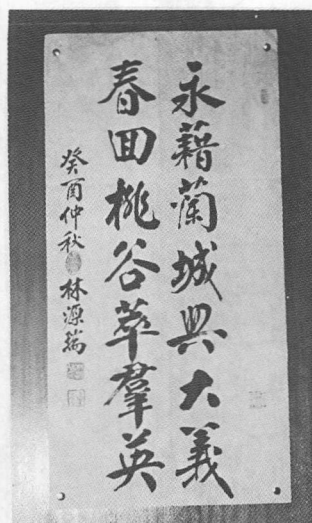 永藉蘭城興大義
春回桃谷萃羣英
癸酉仲秋 林源瑞